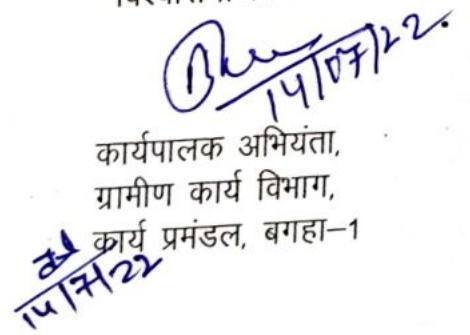 14/07/22.
कार्यपालक अभियंता,
ग्रामीण कार्य विभाग,
कार्य प्रमंडल, बगहा-1
14/7/22